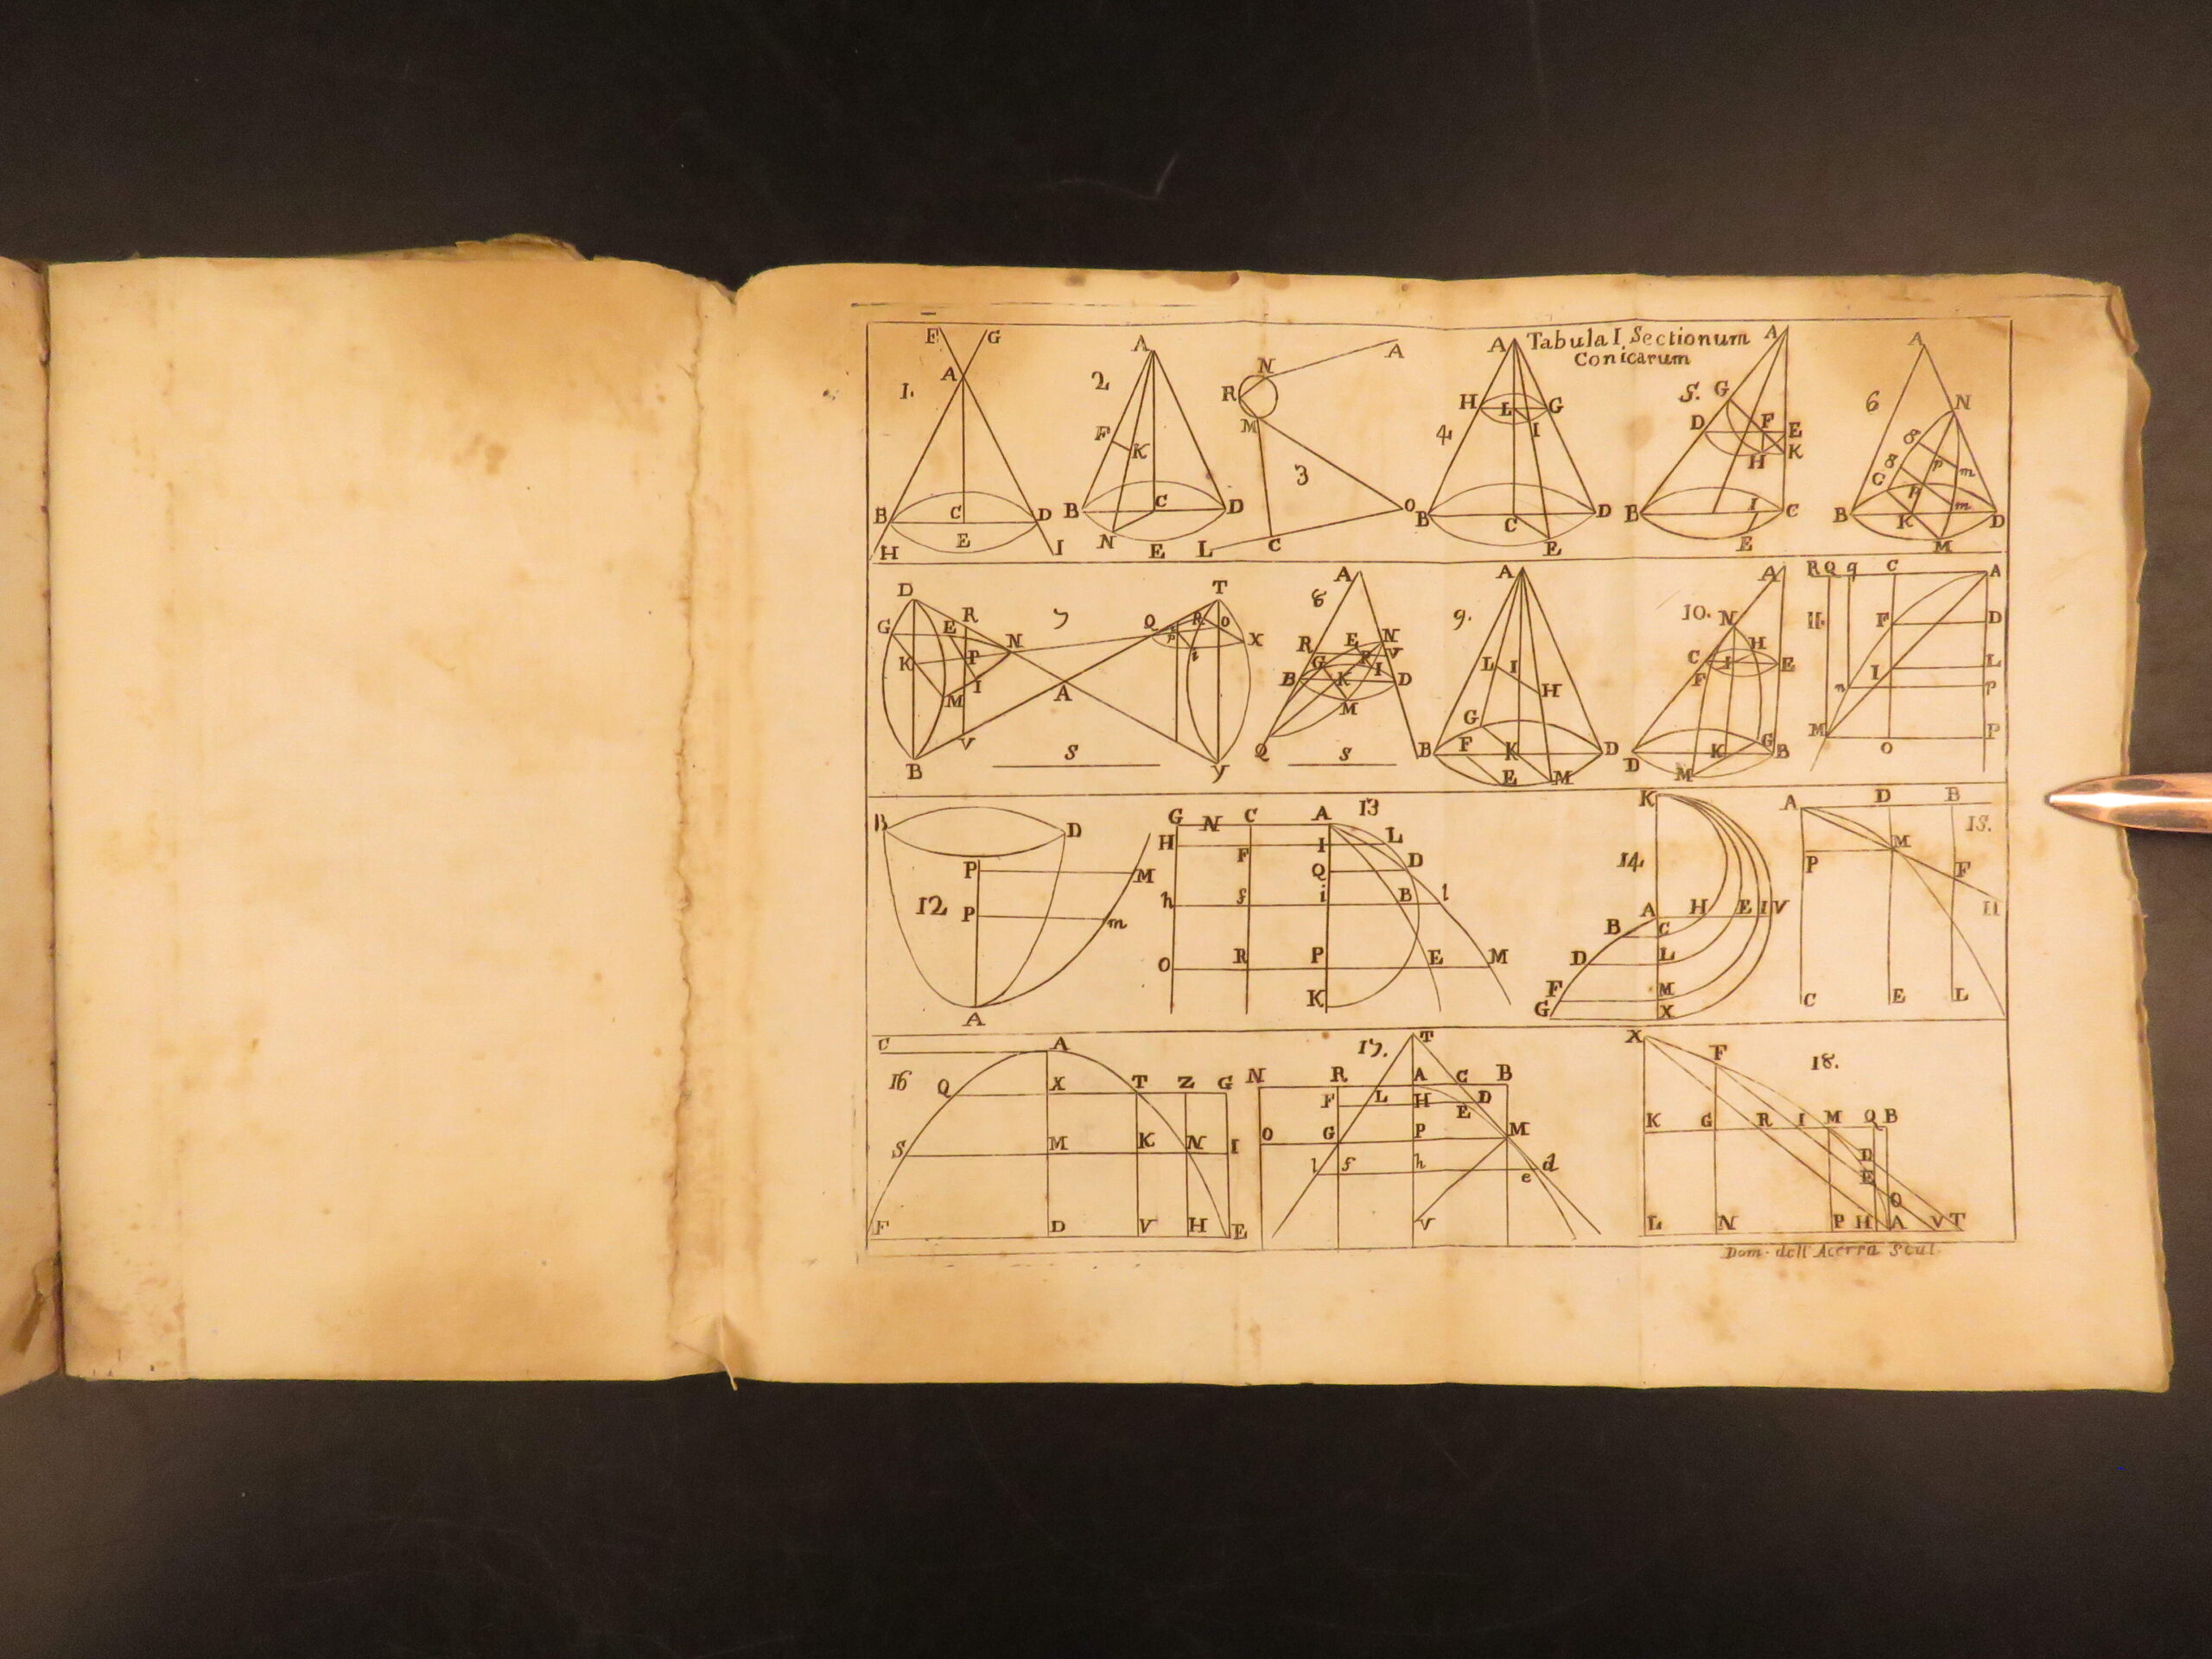 Tabula I Sectionum
Conicarum
1.
F G
A
B C D
H E I
2
A
F K
B C D
N E
3
N A
R
M
O
L C
4
A
H L G
I
B C D
E
5.
A
G
D F E
H K
B I C
E
6
A
N
8
8 p m
G p m
B K D
M
7
D T
G E R N Q P R O X
K P i
M I A
V
B S Y
8
A
R E N
G P V
B K I D
M
Q S
9.
A
L I
H
G
B F K D
E M
10.
A
N
H
C I E
F
D K G B
M
11.
R Q q C A
F D
I L
n p
M O P
12
B D
P M
P m
A
13
G N C A
H F I L
Q D
h f i B l
O R P E M
K
14
K
A H E I V
B C
D L
F M
G X
15.
A D B
M
P F
H
C E L
16
C A
Q X T Z G
S M K N I
F D V H E
17.
T
N R A C B
F L H D
E
O G P M
l f h d
e
V
18.
X F
K G R I M Q B
D
E
O
L N P H A V T
Dom. dell' Acerra Scul.